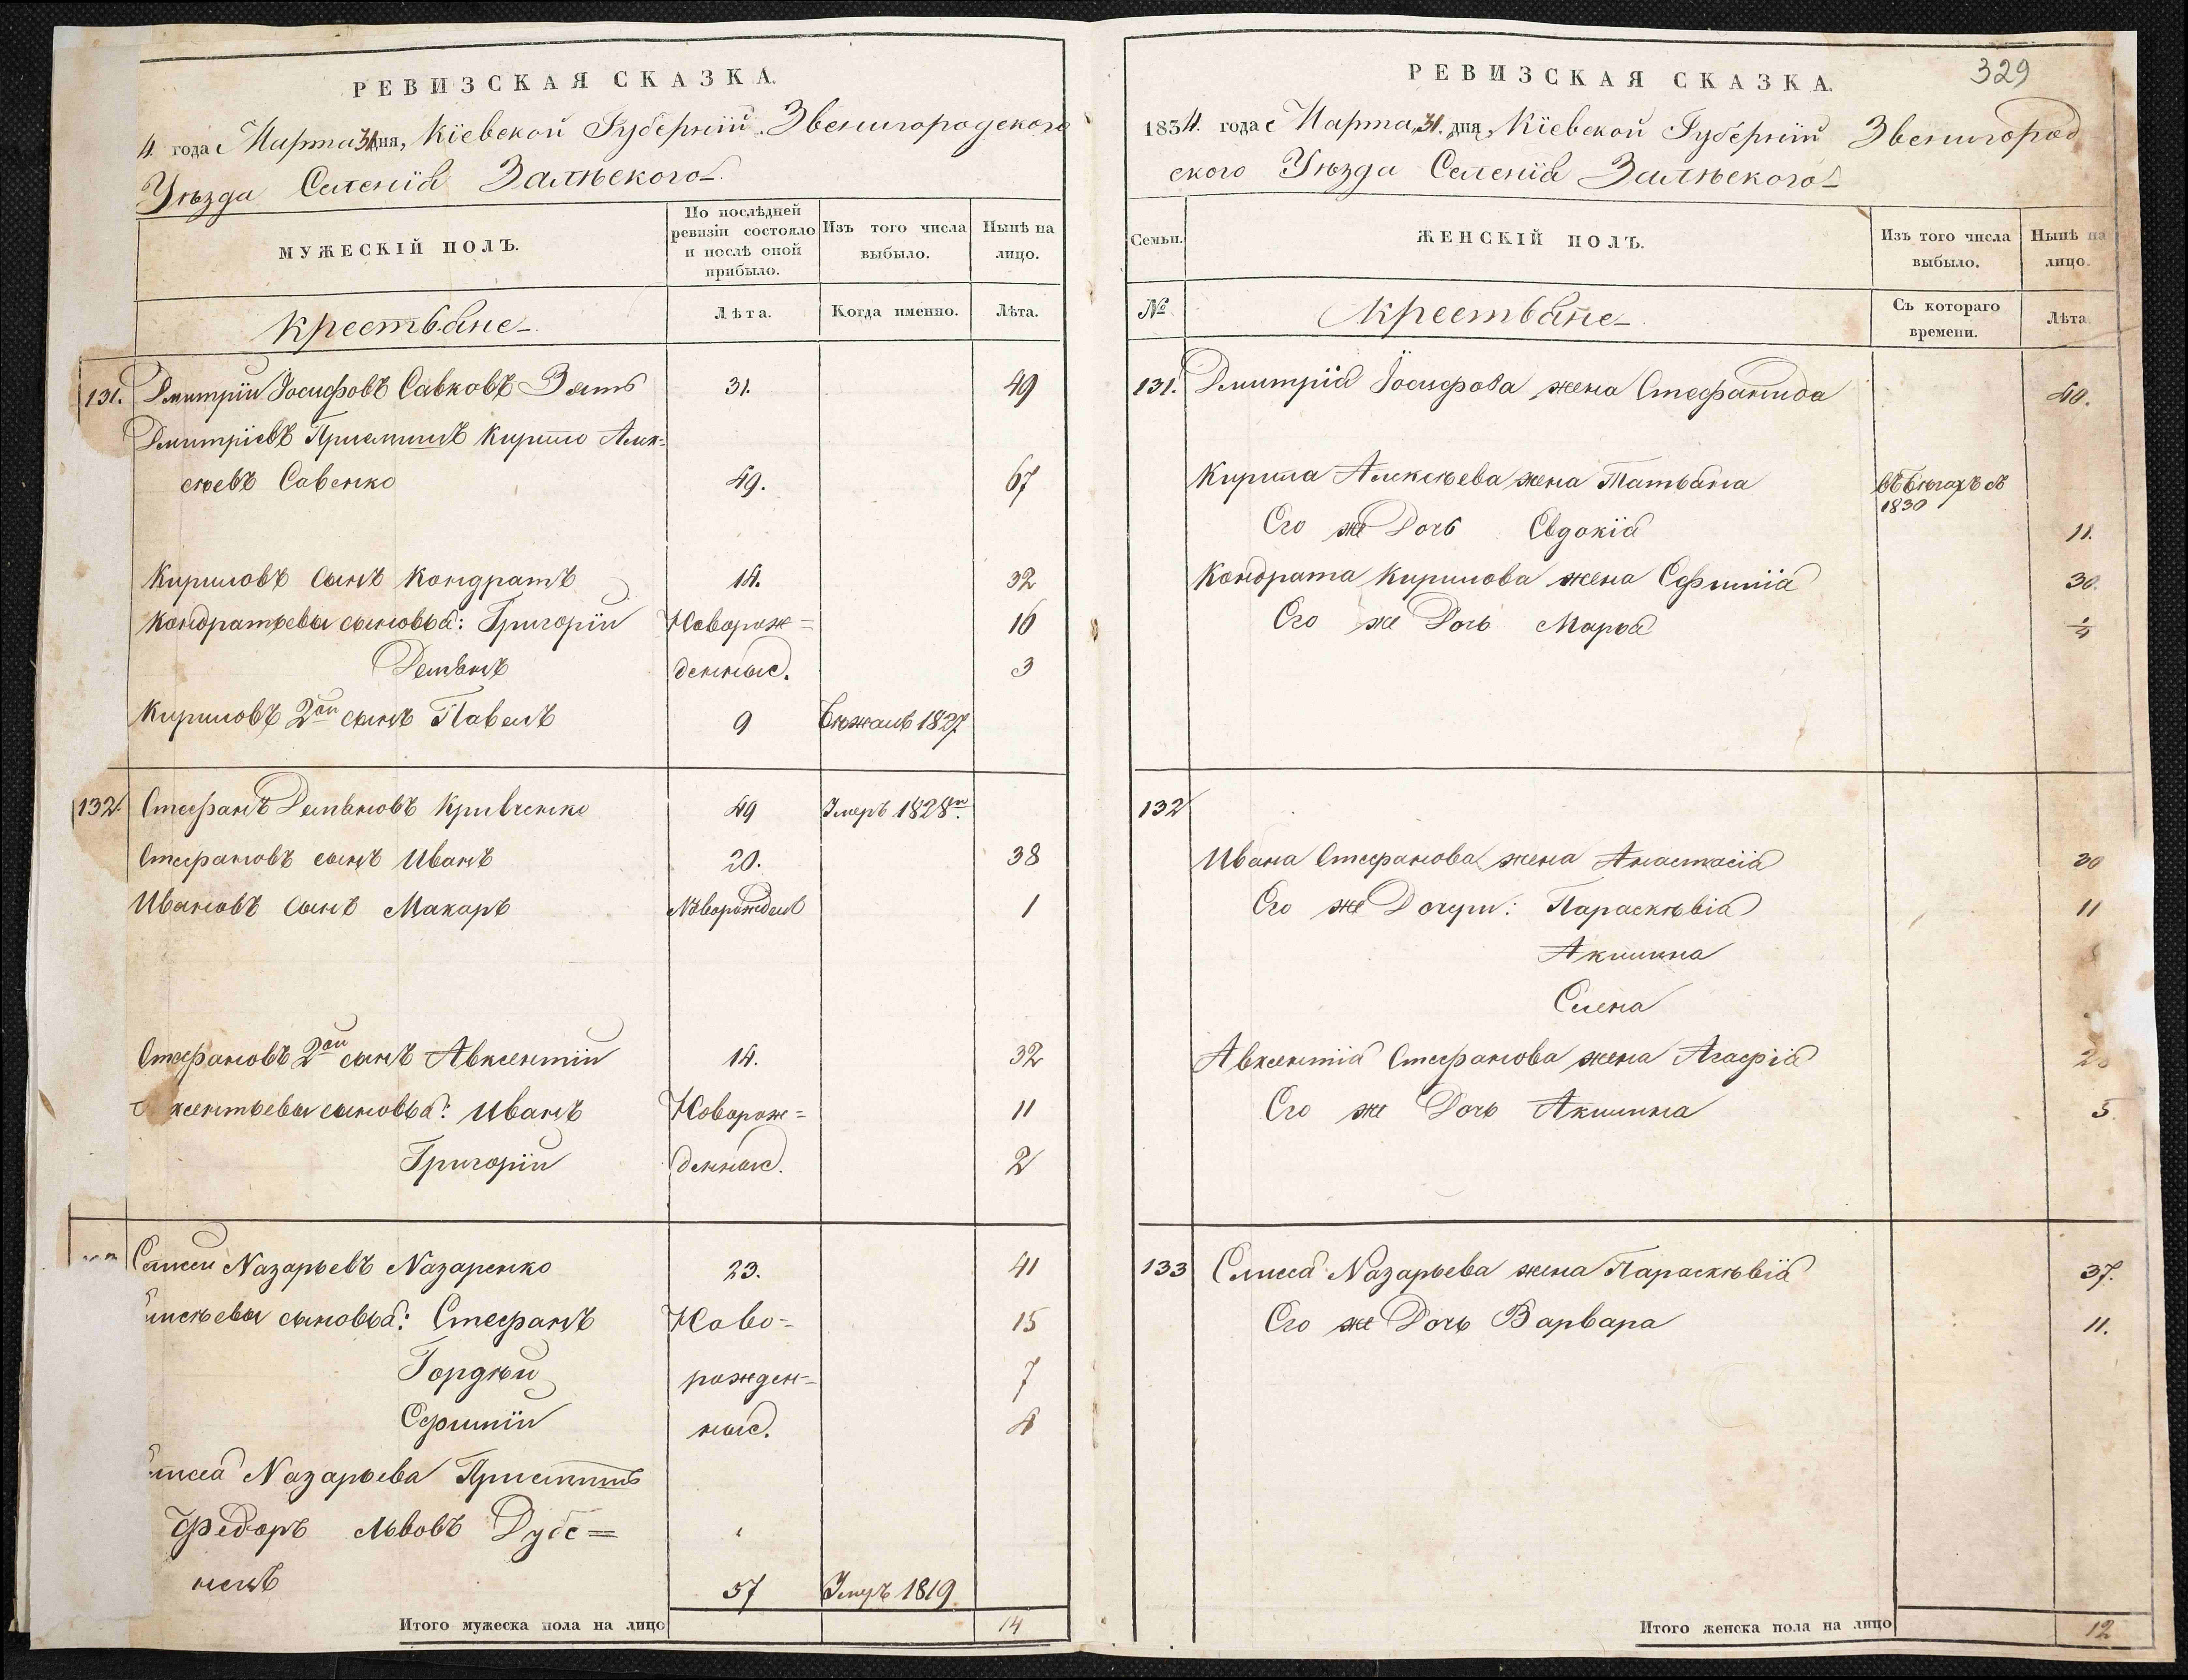 РЕВИЗСКАЯ СКАЗКА.
4. года Марта 31 дня, Кіевской Губерніи Звенигородскаго
Уѣзда Селенія Залѣского
МУЖЕСКІЙ ПОЛЪ.
По послѣдней ревизіи состояло и послѣ оной прибыло.
Изъ того числа выбыло.
Нынѣ на лицо.
Крестьяне
Лѣта.
Когда именно.
Лѣта.
131. Дмитрій Іосифовъ Савковъ Зять 31. 49
Дмитріевъ Приемышъ Кирило Алек=
сѣевъ Савенко 49. 67
Кириловъ сынъ Кондратъ 14. 32
Кондратьевы сыновья: Григорій Новорож= 16
Демьянъ денные. 3
Кириловъ 2ой сынъ Павелъ 9 Бѣжалъ 1827
132. Стефанъ Демьновъ Кривченко 49 Умеръ 1828
Стефановъ сынъ Иванъ 20. 38
Ивановъ сынъ Макаръ 1
Стефановъ 2ой сынъ Авксентій 14. 32
ксентьевы сыновья: Иванъ Новорож= 11
Григорій денные. 2
Елисей Назарьевъ Назаренко 23. 41
лисѣевы сыновья: Стефанъ Ново= 15
Гордѣй рожден= 7
Ефимій ные. 4
лисея Назарьева Приемышъ
Федоръ Львовъ Дубе=
нецъ 57 Умеръ 1819
Итого мужеска пола на лицо 14
РЕВИЗСКАЯ СКАЗКА.
329
1834. года Марта 31. дня, Кіевской Губерніи Звенигород
ского Уѣзда Селенія Залѣского
Семьи.
ЖЕНСКІЙ ПОЛЪ.
Изъ того числа выбыло.
Нынѣ на лицо.
№
Крестьяне
Съ котораго времени.
Лѣта.
131. Дмитрія Іосифова жена Стефанида 40.
Кирила Алексѣева жена Татьяна въ бѣгахъ съ 1830
Его же Дочь Евдокія 11.
Кондрата Кирилова жена Ефимія 30.
Его же Дочь Марья
132
Ивана Стефанова жена Анастасія 30
Его же Дочери: Параскѣвія 11
Акилина
Елена
Авксентія Стефанова жена Агафія
Его же Дочь Акилина 5.
133 Елисея Назарьева жена Параскѣвія 37.
Его же Дочь Варвара 11.
Итого женска пола на лицо 12